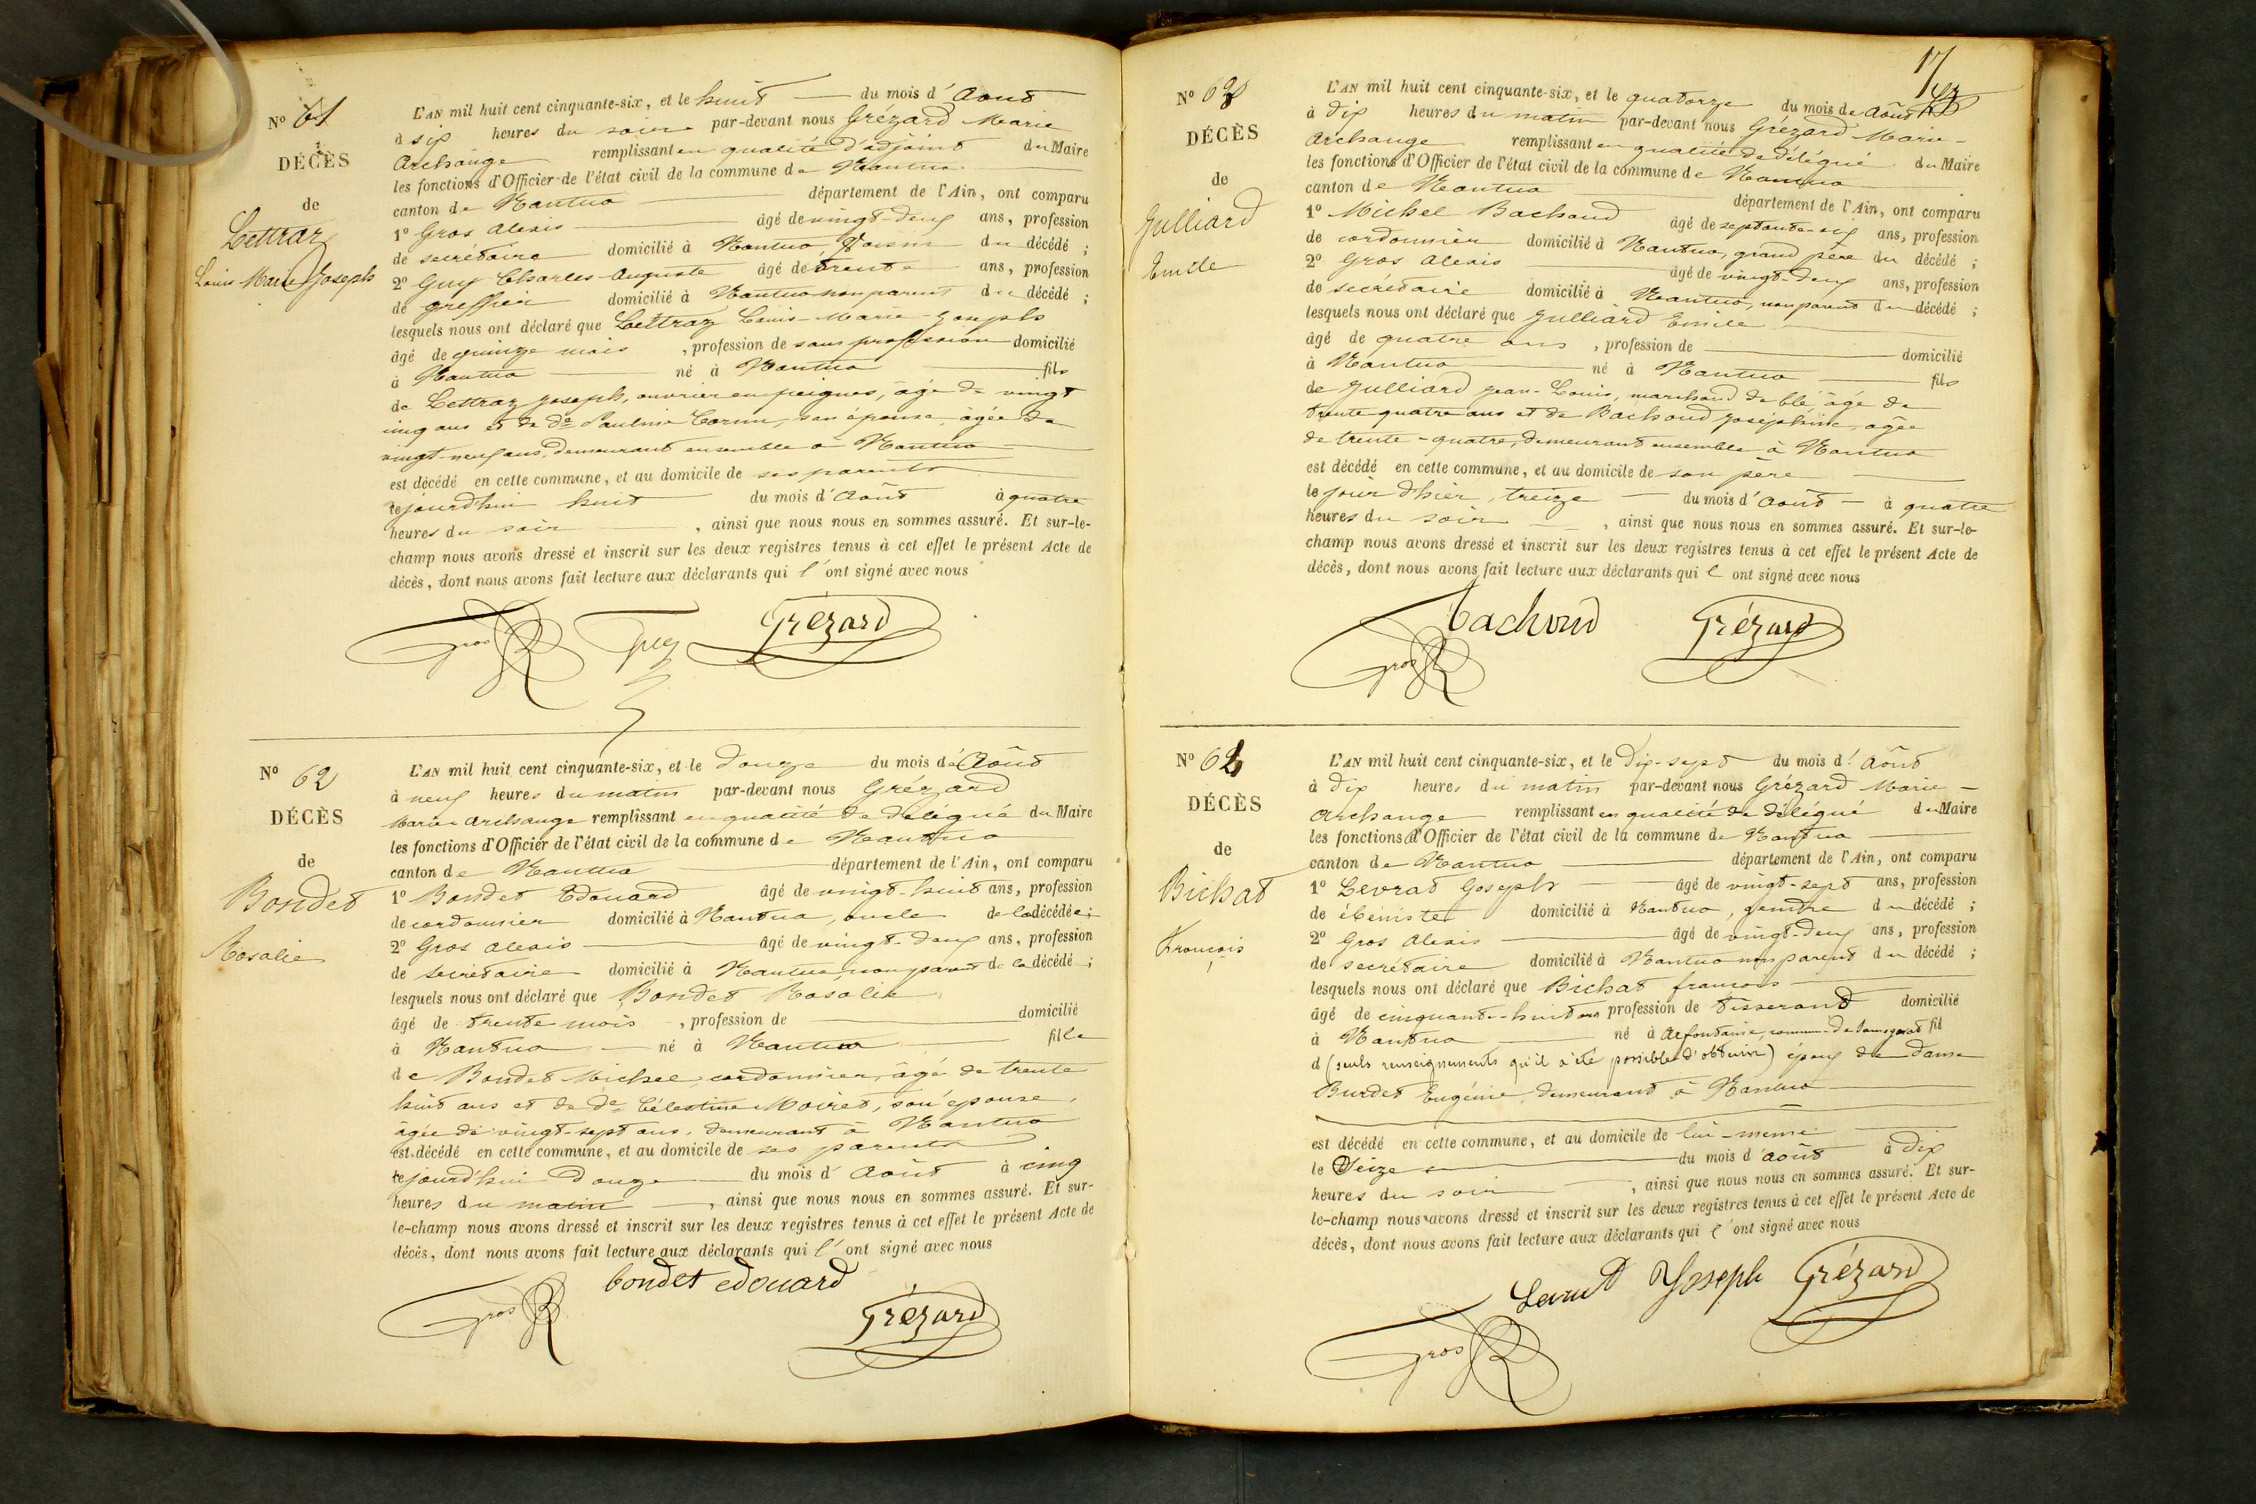 N° 61
DÉCÈS
de
Lettraz
Louis Marie Joseph
L'AN mil huit cent cinquante-six, et le huit du mois d'Aout
à six heures du soir par-devant nous Grézard Marie
Archange remplissant en qualité d'adjoint du Maire
les fonctions d'Officier de l'état civil de la commune de Nantua
canton de Nantua département de l'Ain, ont comparu
1° Gros Alexis âgé de vingt-deux ans, profession
de secrétaire domicilié à Nantua, Voisin du décédé ;
2° Guy Charles-Auguste âgé de trente ans, profession
de greffier domicilié à Nantua non parent du décédé ;
lesquels nous ont déclaré que Lettraz Louis-Marie-Joseph
âgé de quinze mois , profession de sans profession domicilié
à Nantua né à Nantua fils
de Lettraz Joseph, ouvrier en peignes, âgé de vingt
cinq ans et de De Pauline son épouse, âgée de
vingt-neuf ans, demeurant ensemble à Nantua
est décédé en cette commune, et au domicile de ses parents
le jourd'hui huit du mois d'Août à quatre
heures du soir , ainsi que nous nous en sommes assuré. Et sur-le-
champ nous avons dressé et inscrit sur les deux registres tenus à cet effet le présent Acte de
décès, dont nous avons fait lecture aux déclarants qui l'ont signé avec nous
Gros Guy Grézard
N° 62
DÉCÈS
de
Bondet
Rosalie
L'AN mil huit cent cinquante-six, et le douze du mois d'Août
à neuf heures du matin par-devant nous Grézard
Marie Archange remplissant en qualité de délégué du Maire
les fonctions d'Officier de l'état civil de la commune de Nantua
canton de Nantua département de l'Ain, ont comparu
1° Bondet Edouard âgé de vingt-huit ans, profession
de cordonnier domicilié à Nantua, oncle de la décédée ;
2° Gros Alexis âgé de vingt-deux ans, profession
de secrétaire domicilié à Nantua, non parent de la décédé ;
lesquels nous ont déclaré que Bondet Rosalie
âgé de trente mois , profession de domicilié
à Nantua né à Nantua fille
de Bondet Michel, cordonnier, âgé de trente
huit ans et de De Célestine Moiret, son épouse,
âgée de vingt-sept ans, demeurant à Nantua
est décédé en cette commune, et au domicile de ses parents
le jourd'hui Douze du mois d'Août à cinq
heures du matin , ainsi que nous nous en sommes assuré. Et sur-
le-champ nous avons dressé et inscrit sur les deux registres tenus à cet effet le présent Acte de
décès, dont nous avons fait lecture aux déclarants qui l'ont signé avec nous
Gros bondet edouard Grézard
17
N° 63
DÉCÈS
de
Julliard
Emile
L'AN mil huit cent cinquante-six, et le quatorze du mois de Août
à dix heures du matin par-devant nous Grézard Marie-
Archange remplissant en qualité de délégué du Maire
les fonctions d'Officier de l'état civil de la commune de Nantua
canton de Nantua département de l'Ain, ont comparu
1° Michel Bachoud âgé de septante-six ans, profession
de cordonnier domicilié à Nantua, grand père du décédé ;
2° Gros Alexis âgé de vingt-deux ans, profession
de secrétaire domicilié à Nantua, non parent du décédé ;
lesquels nous ont déclaré que Julliard Emile
âgé de quatre ans , profession de domicilié
à Nantua né à Nantua fils
de Julliard Jean-Louis, marchand de blé âgé de
trente quatre ans et de Bachoud Joséphine, âgée
de trente-quatre, demeurant ensemble à Nantua
est décédé en cette commune, et au domicile de son père
le jour d'hier, treize du mois d'Août à quatre
heures du soir , ainsi que nous nous en sommes assuré. Et sur-le-
champ nous avons dressé et inscrit sur les deux registres tenus à cet effet le présent Acte de
décès, dont nous avons fait lecture aux déclarants qui l'ont signé avec nous
Gros bachoud Grézard
N° 64
DÉCÈS
de
Bichat
François
L'AN mil huit cent cinquante-six, et le dix-sept du mois d'Août
à dix heures du matin par-devant nous Grézard Marie-
Archange remplissant en qualité de délégué du Maire
les fonctions d'Officier de l'état civil de la commune de Nantua
canton de Nantua département de l'Ain, ont comparu
1° Levrat Joseph âgé de vingt-sept ans, profession
de ébéniste domicilié à Nantua, gendre du décédé ;
2° Gros Alexis âgé de vingt-deux ans, profession
de secrétaire domicilié à Nantua non parent du décédé ;
lesquels nous ont déclaré que Bichat françois
âgé de cinquante-huit ans profession de tisserand domicilié
à Nantua né à commune de fil
d (seuls renseignements qu'il a été possible d'obtenir) époux de dame
Burdet Eugénie demeurant à Nantua
est décédé en cette commune, et au domicile de lui-même
le Seize du mois d'août à dix
heures du soir , ainsi que nous nous en sommes assuré. Et sur-
le-champ nous avons dressé et inscrit sur les deux registres tenus à cet effet le présent Acte de
décès, dont nous avons fait lecture aux déclarants qui l'ont signé avec nous
Gros Levrat Joseph Grézard